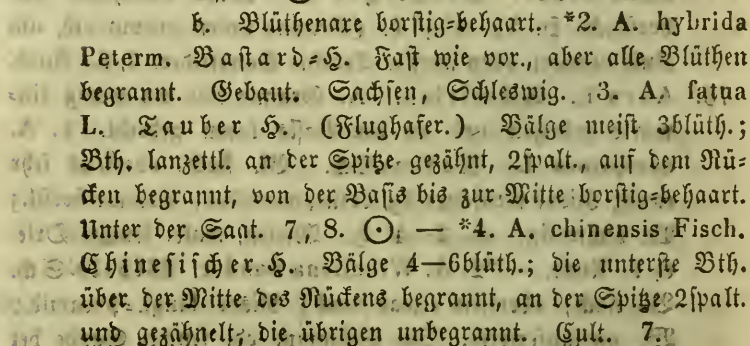 b. Blüthenaxe borstig=behaart. *2. A. hybrida
Peterm. Bastard=H. Fast wie vor., aber alle Blüthen
begrannt. Gebaut. Sachsen, Schleswig. 3. A. fatua
L. Tauber H. (Flughafer.) Bälge meist 3blüth.;
Bth. lanzettl. an der Spitze gezähnt, 2spalt., auf dem Rü=
cken begrannt, von der Basis bis zur Mitte borstig=behaart.
Unter der Saat. 7, 8. ⊙. — *4. A. chinensis Fisch.
Chinesischer H. Bälge 4—6blüth.; die unterste Bth.
über der Mitte des Rückens begrannt, an der Spitze 2spalt.
und gezähnelt, die übrigen unbegrannt. Cult. 7.